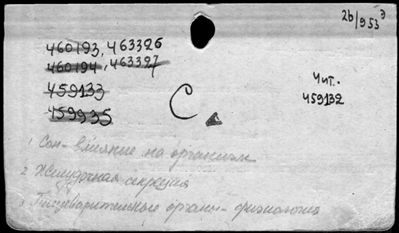 26/953э
460193, 463326
460194, 463327
459133
459935
С
Чит.
459132
1 Сон - влияние на организм
2 Желудочная секреция
3 Пищеварительные органы - физиология